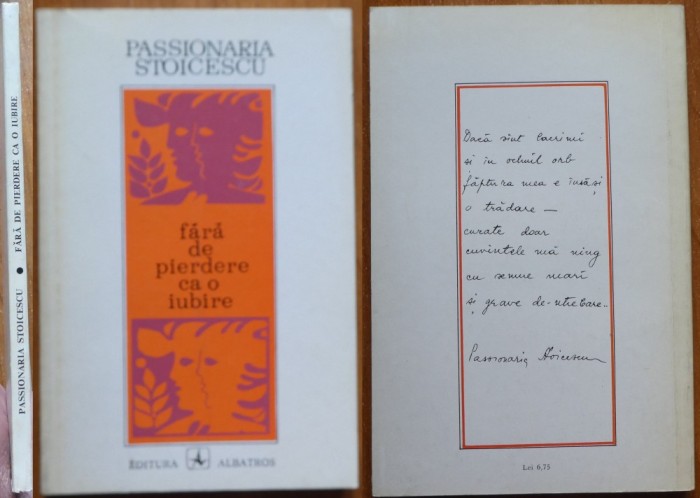 PASSIONARIA STOICESCU ● FĂRĂ DE PIERDERE CA O IUBIRE
PASSIONARIA
STOICESCU
fără
de
pierdere
ca o
iubire
EDITURA ALBATROS
Dacă sînt lacrimi
și în ochiul orb
făptura mea e însăși
o trădare —
curate doar
cuvintele mă ning
cu semne mari
și grave de-ntrebare..
Passionaria Stoicescu
Lei 6,75